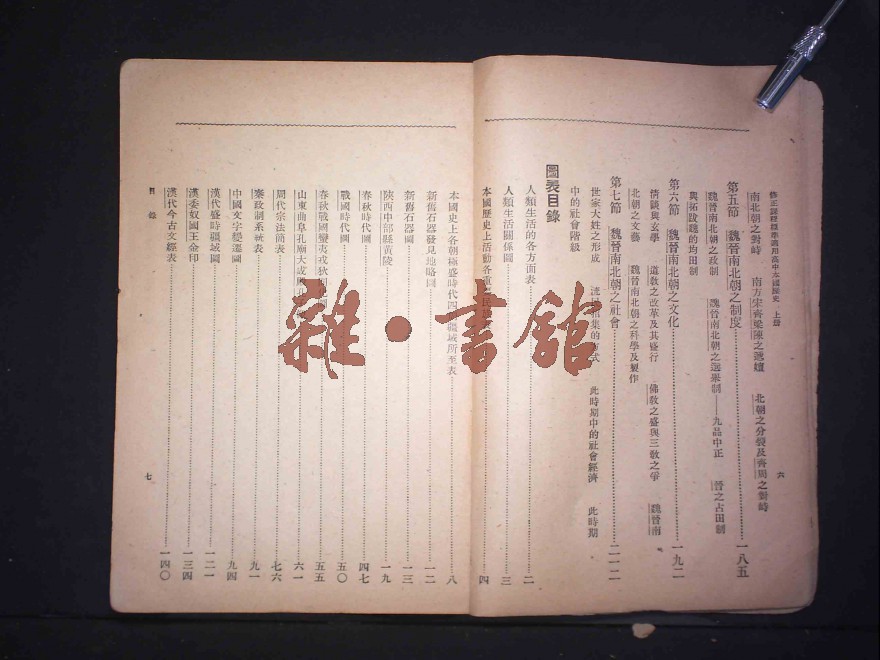 修正課程標準適用高中本國歷史 上册
六
南北朝之對峙 南方宋齊梁陳之遞嬗 北朝之分裂及齊周之對峙
第五節 魏晉南北朝之制度……一八五
魏晉南北朝之政制 魏晉南北朝之選舉制——九品中正 晉之占田制
與拓跋魏的均田制
第六節 魏晉南北朝之文化……一九二
清談與玄學 道敎之改革及其盛行 佛敎之盛與三敎之爭 魏晉南
北朝之文藝 魏晉南北朝之科學及製作
第七節 魏晉南北朝之社會……二一二
世家大姓之形成 集的方式 此時期中的社會經濟 此時期
中的社會階級
圖表目錄
人類生活的各方面表……二
人類生活關係圖……三
本國歷史上活動各……四
本國史上各朝極盛時代四疆域所至表……八
新舊石器發見地略圖……一二
新舊石器圖……一三
陝西中部縣黃陵……一九
春秋時代圖……四七
戰國時代圖……五〇
春秋戰國蠻夷戎狄……五五
山東曲阜孔廟大成殿……六一
周代宗法簡表……七六
秦政制系統表……九一
中國文字變遷圖……九四
漢代盛時疆域圖……一二一
漢委奴國王金印……一三四
漢代今古文經表……一四〇
目錄
七
雜·書館